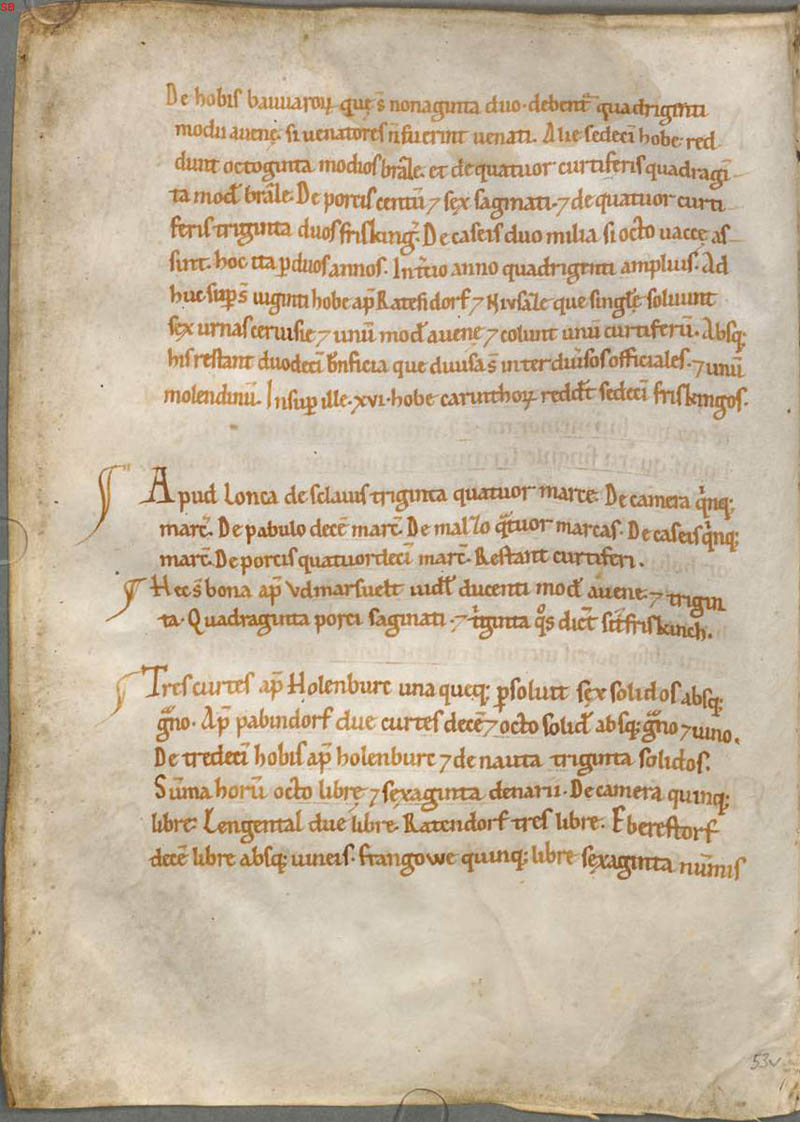 SB
De hobis bauuaroꝝ quę s̄ nonaginta duo · debent᷑ quadrigenti
modii auenę · si uenatores n̄ fuerint uenati. Alie sedeci̅ hobe · red
dunt octoginta modios bra̅le · et de quatuor curtiferis quadragi̅
ta mod̅ bra̅le · De porcis centu̅ ⁊ sex saginati · ⁊ de quatuor curti
feris triginta duos frisking᷑. De caseis duo milia si octo uaccę as
sint. hoc ita ꝑ duos annos. In t̅cio anno quadrigenti amplius. Ad
huc · suꝑ s̄ uiginti hobe ap̄ Ratesidorf ⁊ que singlę soluunt
sex urnas ceruisie ⁊ unu̅ mod̅ auenę ⁊ colunt unu̅ curtiferu̅. Absq;
his restant duodeci̅ b̅nficia que diuisa s̄ inter diu̅sos officiales · ⁊ unu̅
molendinu̅. Insuꝑ ille · xvi · hobe caruthoꝝ redd̅t sedeci̅ friskingos.
Apud Lonca de sclauis triginta quatuor marce. De camera q̍nq;
marc᷑. De pabulo dece̅ marc᷑. De mal̅lo q̄tuor marcas. De caseis q̍nq;
marc᷑. De porcis quatuordeci̅ marc᷑. Restant curtiferi.
Hec s̄ bona ap̄ Vdmarsuelt uidl̅ ducenti mod̅ auene · ⁊ trigin
ta · Quadraginta porci saginati · ⁊ t̍ginta q̊s dic̅t friskinch.
Tres curtes ap̄ Holenburc una queq; ꝑsoluit sex solidos absq;
g̅no · Ap̄ pabindorf due curtes dece̅ ⁊ octo solid̅ absq; g̅no ⁊ uino.
De tredeci̅ hobis ap̄ holenburc ⁊ de nauta triginta solidos.
Su̅ma horu̅ octo librę ⁊ sexaginta denarii · De camera quinq;
libre · Lengental due libre · Ratendorf tres libre · Eberestorf
dece̅ libre absq; uineis · stangowe quinq; libre sexaginta nu̅mis
53v